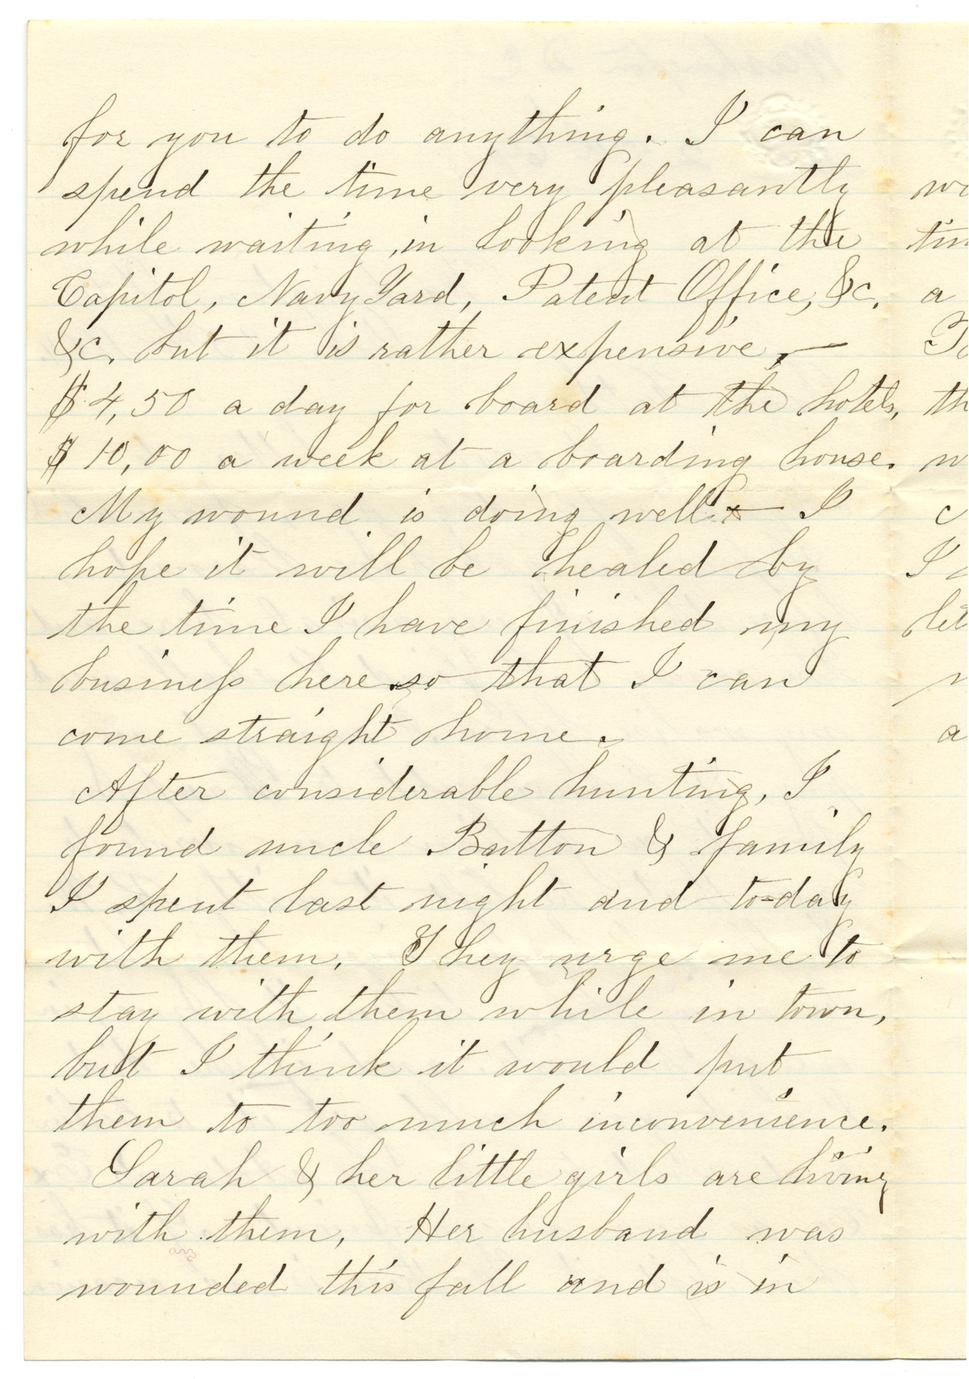 for you to do anything. I can
spend the time very pleasantly
while waiting, in looking at the
Capitol, Navy Yard, Patent Office, &c.
&c. but it is rather expensive, —
$4,50 a day for board at the hotels,
$10,00 a week at a boarding house.
My wound is doing well — I
hope it will be healed by
the time I have finished my
business here so that I can
come straight home.
After considerable hunting, I
found uncle Button & family
I spent last night and to-day
with them. They urge me to
stay with them while in town,
but I think it would put
them to too much inconvenience.
Sarah & her little girls are living
with them, Her husband was
wounded this fall and is in